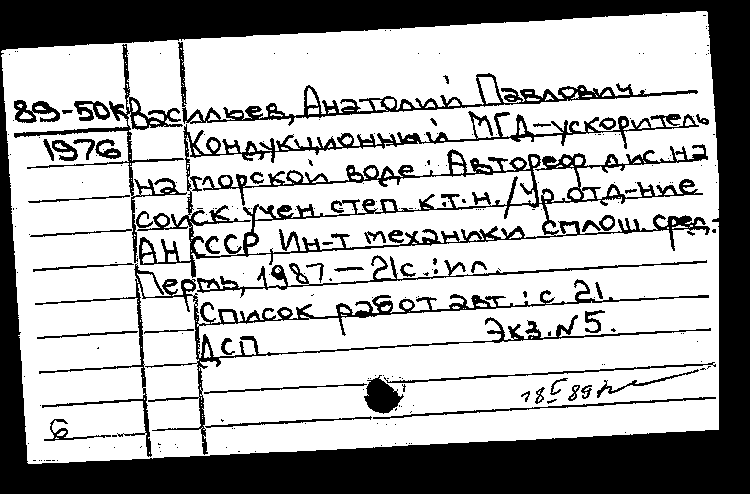 89-50к Васильев, Анатолий Павлович.
1976 Кондукционный МГД-ускоритель
на морской воде: Автореф. дис. на
соиск. учен. степ. к.т.н. / Ур. отд-ние
АН СССР, Ин-т механики сплош. сред.-
Пермь, 1987. — 21с.: ил.
Список работ авт.: с. 21.
ДСП. Экз. N 5.
18 I 89
6